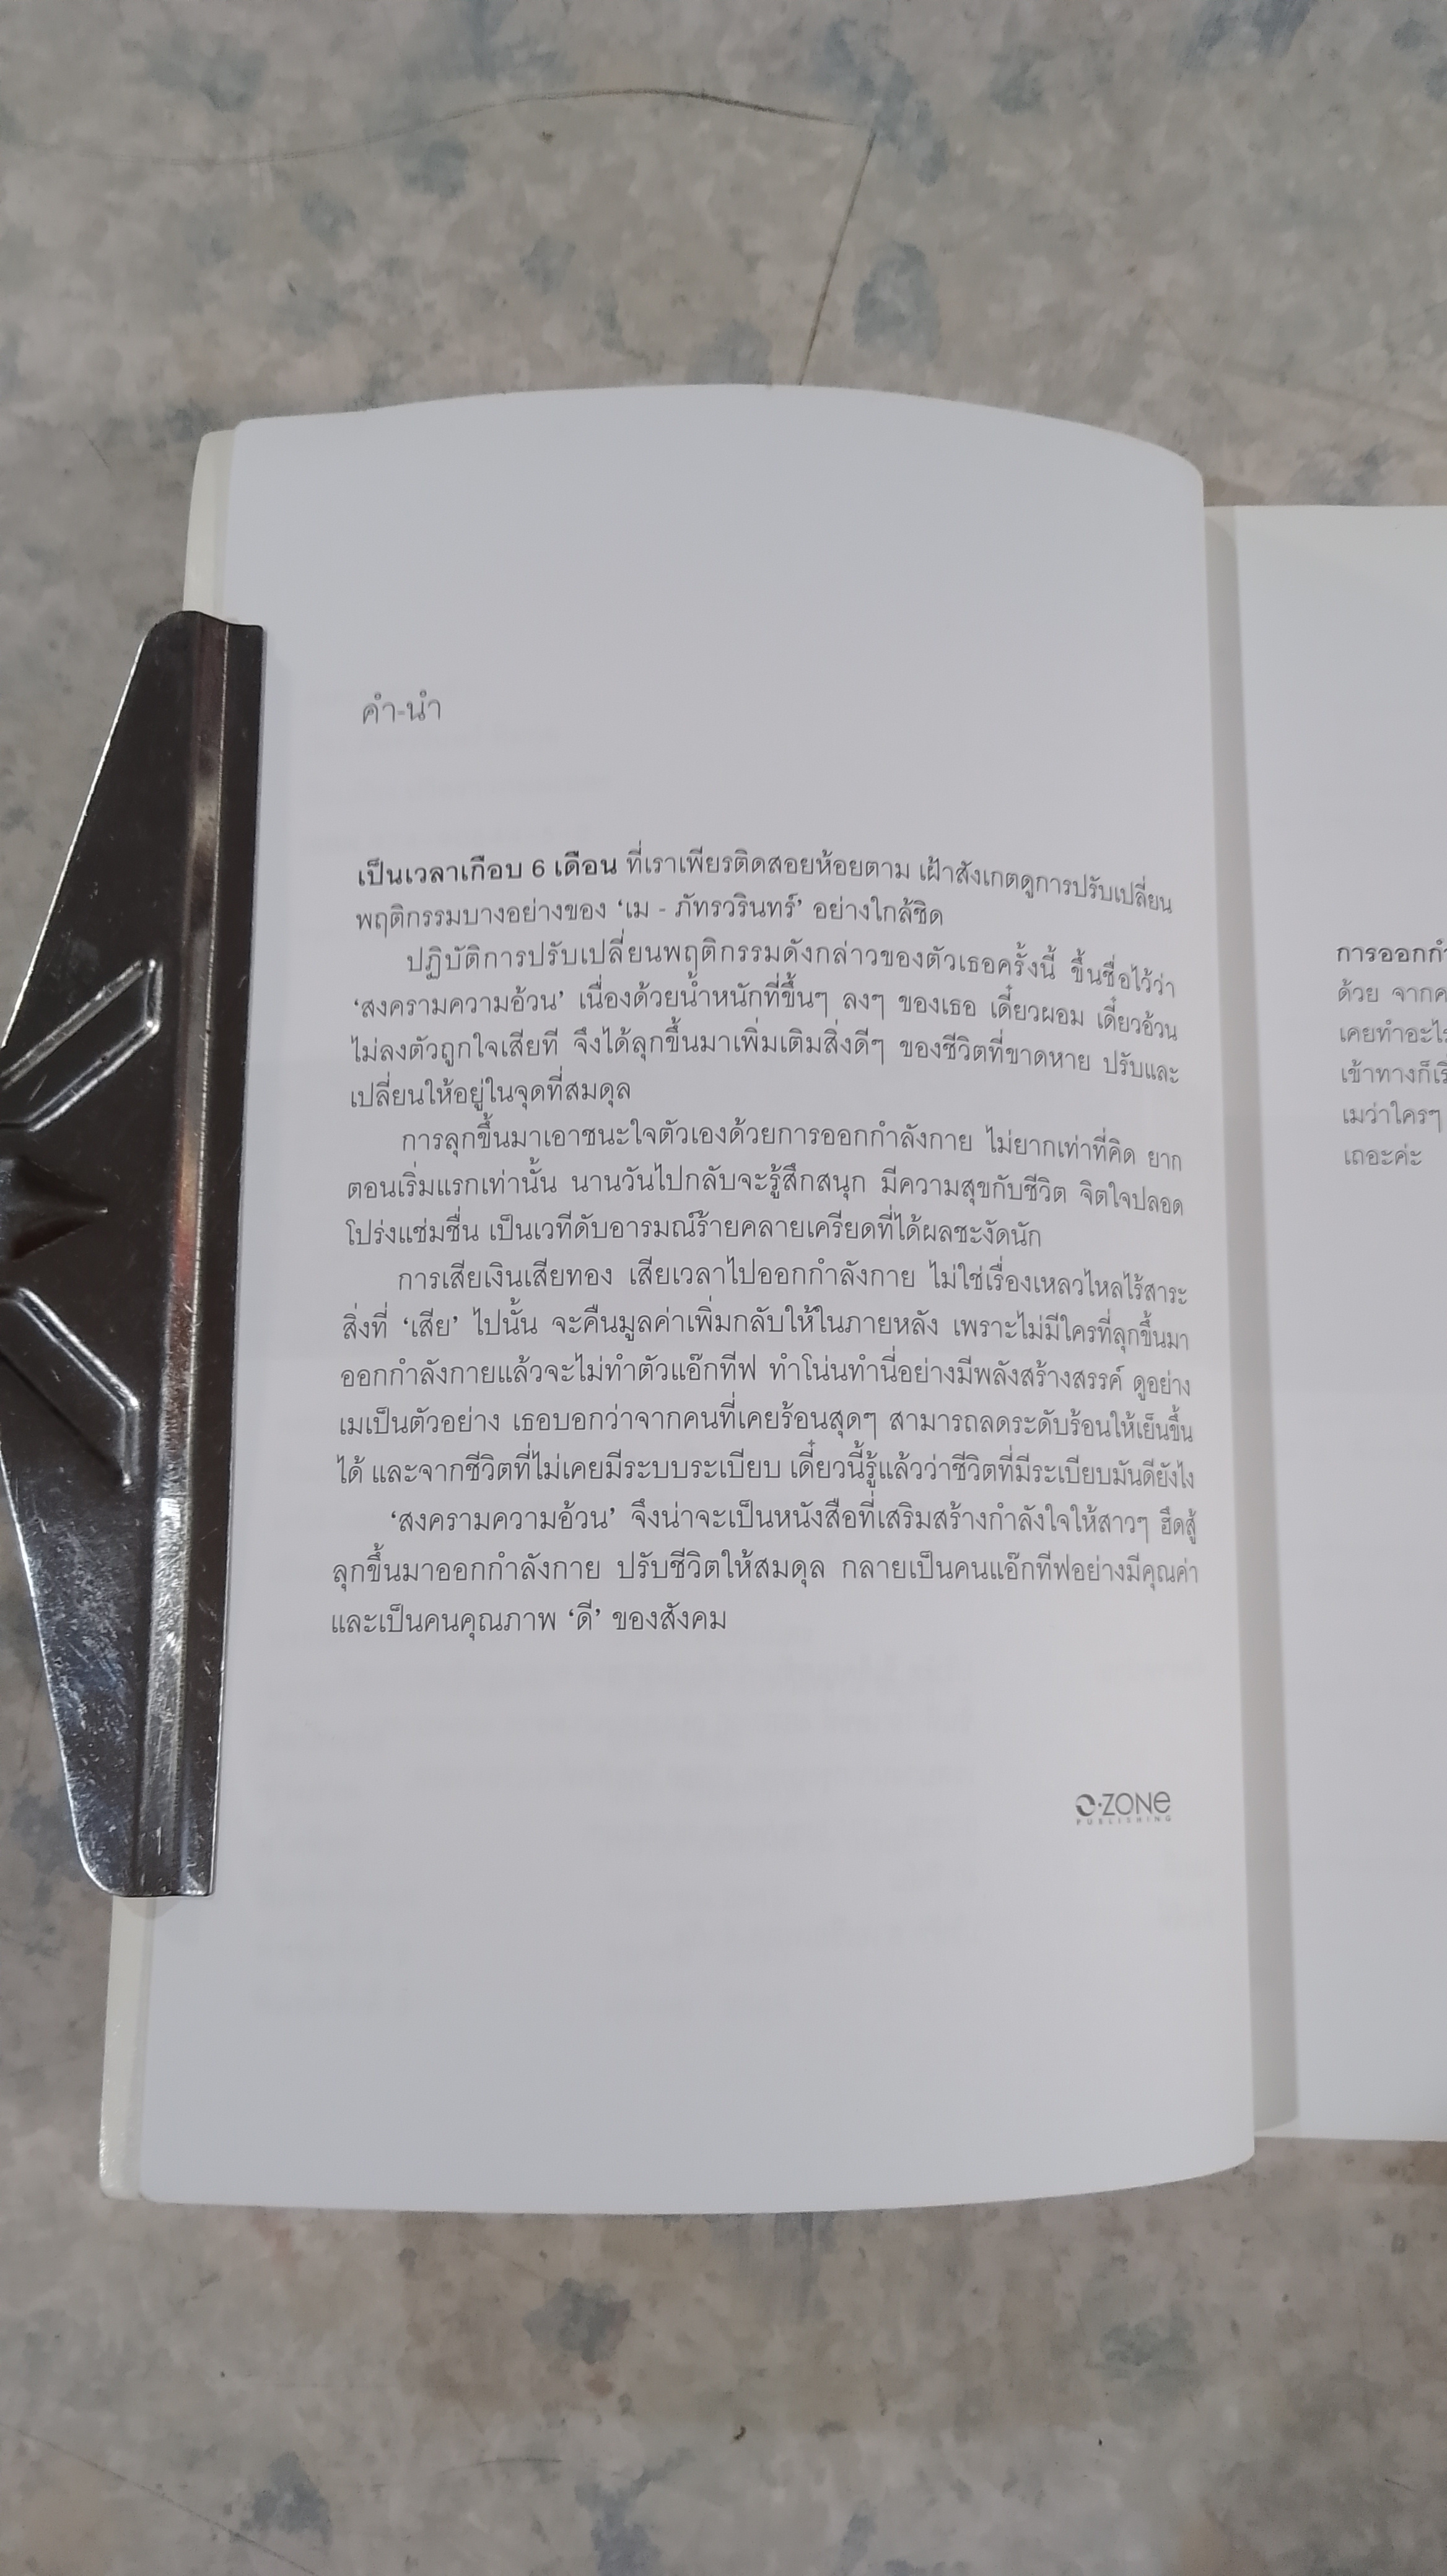 คำ-นำ
เป็นเวลาเกือบ 6 เดือน ที่เราเพียรติดสอยห้อยตาม เฝ้าสังเกตดูการปรับเปลี่ยน
พฤติกรรมบางอย่างของ ‘เม - ภัทรวรินทร์’ อย่างใกล้ชิด
ปฏิบัติการปรับเปลี่ยนพฤติกรรมดังกล่าวของตัวเธอครั้งนี้ ขึ้นชื่อไว้ว่า
‘สงครามความอ้วน’ เนื่องด้วยน้ำหนักที่ขึ้นๆ ลงๆ ของเธอ เดี๋ยวผอม เดี๋ยวอ้วน
ไม่ลงตัวถูกใจเสียที จึงได้ลุกขึ้นมาเพิ่มเติมสิ่งดีๆ ของชีวิตที่ขาดหาย ปรับและ
เปลี่ยนให้อยู่ในจุดที่สมดุล
การลุกขึ้นมาเอาชนะใจตัวเองด้วยการออกกำลังกาย ไม่ยากเท่าที่คิด ยาก
ตอนเริ่มแรกเท่านั้น นานวันไปกลับจะรู้สึกสนุก มีความสุขกับชีวิต จิตใจปลอด
โปร่งแช่มชื่น เป็นเวทีดับอารมณ์ร้ายคลายเครียดที่ได้ผลชะงัดนัก
การเสียเงินเสียทอง เสียเวลาไปออกกำลังกาย ไม่ใช่เรื่องเหลวไหลไร้สาระ
สิ่งที่ ‘เสีย’ ไปนั้น จะคืนมูลค่าเพิ่มกลับให้ในภายหลัง เพราะไม่มีใครที่ลุกขึ้นมา
ออกกำลังกายแล้วจะไม่ทำตัวแอ๊กทีฟ ทำโน่นทำนี่อย่างมีพลังสร้างสรรค์ ดูอย่าง
เมเป็นตัวอย่าง เธอบอกว่าจากคนที่เคยร้อนสุดๆ สามารถลดระดับร้อนให้เย็นขึ้น
ได้ และจากชีวิตที่ไม่เคยมีระบบระเบียบ เดี๋ยวนี้รู้แล้วว่าชีวิตที่มีระเบียบมันดียังไง
‘สงครามความอ้วน’ จึงน่าจะเป็นหนังสือที่เสริมสร้างกำลังใจให้สาวๆ ฮึดสู้
ลุกขึ้นมาออกกำลังกาย ปรับชีวิตให้สมดุล กลายเป็นคนแอ๊กทีฟอย่างมีคุณค่า
และเป็นคนคุณภาพ ‘ดี’ ของสังคม
O·ZONE
PUBLISHING
การออกกำ
ด้วย จากค
เคยทำอะไร
เข้าทางก็เริ
เมว่าใครๆ
เถอะค่ะ